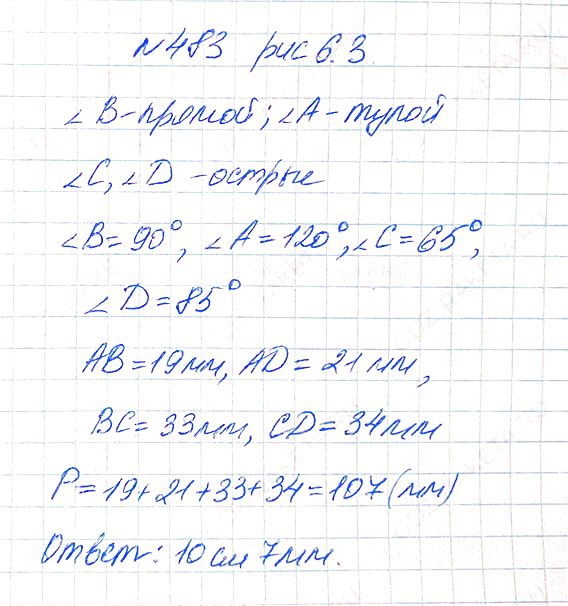 №483 рис 6.3.
∠B-прямой; ∠A-тупой
∠C, ∠D -острые
∠B=90°, ∠A=120°, ∠C=65°,
∠D=85°
AB=19мм, AD=21мм,
BC=33мм, CD=34мм
P=19+21+33+34=107(мм)
Ответ: 10см 7мм.